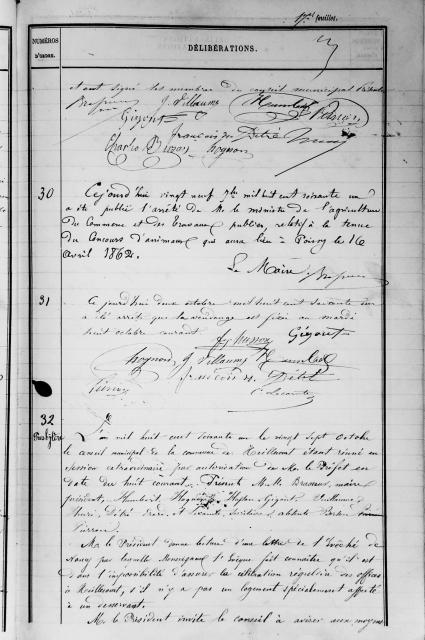 17me feuillet.
NUMÉROS
D'ORDRE.
DÉLIBÉRATIONS.
ont signé les membres du conseil municipal
Brasseur J. Villaume Humbert
Gégout François
Charles Hognon
30
Cejourd'hui vingt neuf 7bre mil huit cent soixante un
a été publié l'arrêté de Mr le ministre de l'agriculture
du Commerce et des travaux publics, relatif à la tenue
du Concours d'animaux qui aura lieu à Poissy le 16
Avril 1862.
Le Maire Brasseur
31
Ce jourd'hui deux octobre mil huit cent soixante un
a été arrêté que la vendange est fixée au mardi
huit octobre courant
Gégout
Hognon J. Villaume Humbert
François
Pierron
32
Presbytère
L'an mil huit cent soixante un le vingt sept Octobre
le conseil municipal de la commune de étant réuni en
session extraordinaire par autorisation de Mr. le Préfet en
date du huit courant. Présents M. M. Brasseur, maire
président, Humbert, Hognon Gégout, Villaume
Pierron
Mr. le Président donne lecture d'une lettre de l'Evêché de
Nancy par laquelle Monseigneur l'Evêque fait connaître qu'il est
dans l'impossibilité d'assurer la célébration régulière des offices
à s'il n'y a pas un logement spécialement affecté
à un desservant.
M. le Président invite le conseil à aviser aux moyens